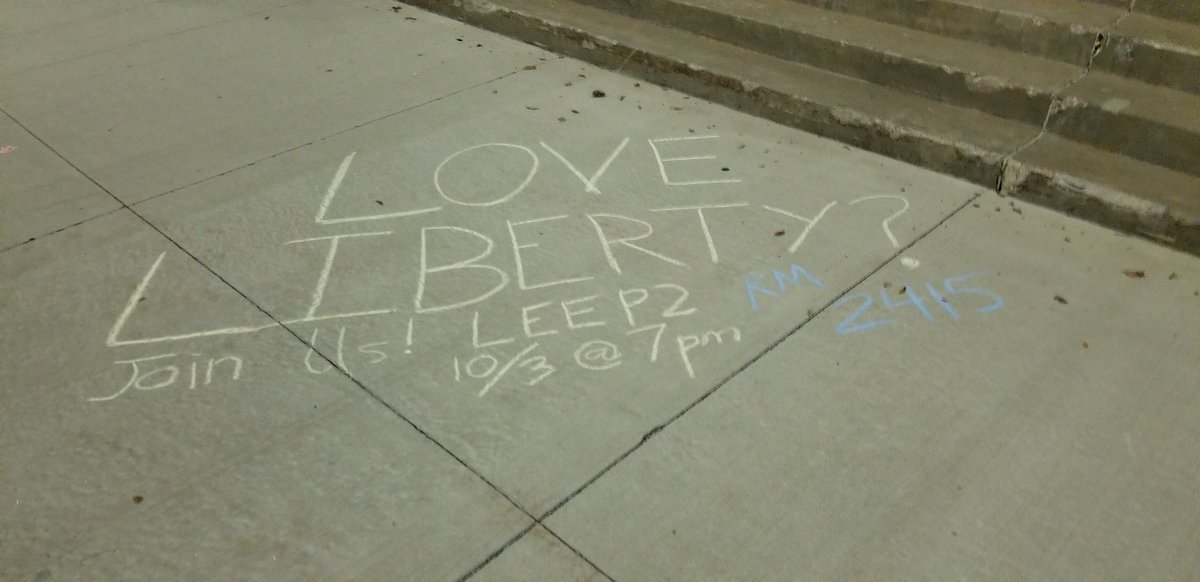 LOVE
LIBERTY?
Join Us! LEEP2 RM 2415
10/3 @ 7pm